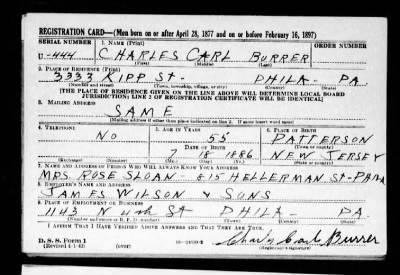 REGISTRATION CARD—(Men born on or after April 28, 1877 and on or before February 16, 1897)
SERIAL NUMBER 1. NAME (Print) ORDER NUMBER
U-444 CHARLES CARL BURRER
(First) (Middle) (Last)
2. PLACE OF RESIDENCE (Print)
3333 RIPP ST- PHILA- PA
(Number and street) (Town, township, village, or city) (County) (State)
[THE PLACE OF RESIDENCE GIVEN ON THE LINE ABOVE WILL DETERMINE LOCAL BOARD
JURISDICTION; LINE 2 OF REGISTRATION CERTIFICATE WILL BE IDENTICAL]
3. MAILING ADDRESS
SAME
[Mailing address if other than place indicated on line 2. If same insert word same]
4. TELEPHONE 5. AGE IN YEARS 6. PLACE OF BIRTH
NO 55 PATTERSON
DATE OF BIRTH (Town or county)
7 18 1886 NEW JERSEY
(Exchange) (Number) (Mo.) (Day) (Yr.) (State or country)
7. NAME AND ADDRESS OF PERSON WHO WILL ALWAYS KNOW YOUR ADDRESS
MRS ROSE SLOAN 815 HELLERMAN ST- PHILA
8. EMPLOYER'S NAME AND ADDRESS
JAMES WILSON & SONS
9. PLACE OF EMPLOYMENT OR BUSINESS
1143 N 4th ST PHILA- PA
(Number and street or R. F. D. number) (Town) (County) (State)
I AFFIRM THAT I HAVE VERIFIED ABOVE ANSWERS AND THAT THEY ARE TRUE.
D. S. S. Form 1
(Revised 4-1-42) (over) Charles Carl Burrer
(Registrant's signature)